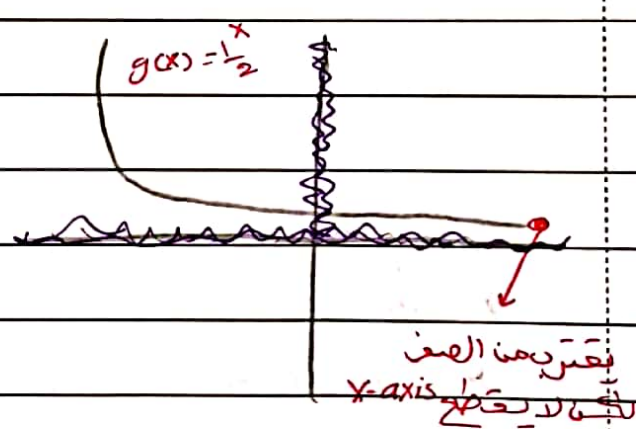 g(x) = 1/2^x
يقترب من الصفر
لكن لا يقطع x-axis